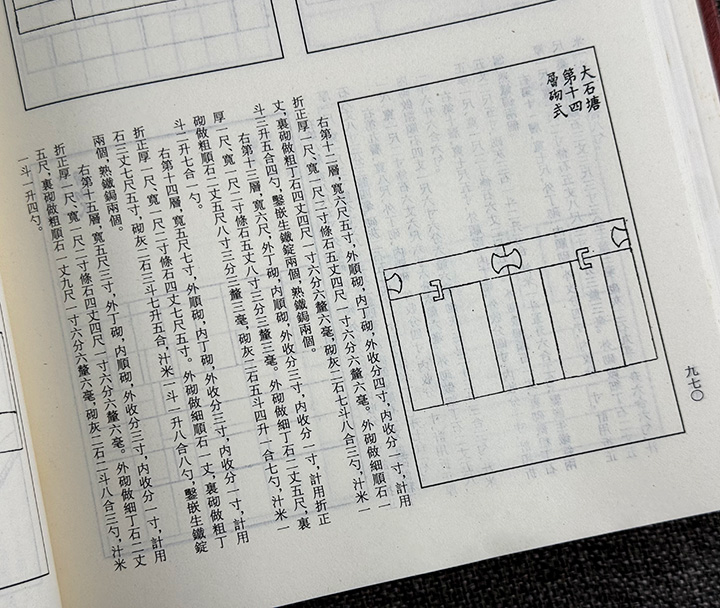 大石塘
第十四
層砌式
右第十二層，寬六尺五寸，外順砌，內丁砌，外收分四寸，內收分一寸，計用
折正厚一尺、寬一尺二寸條石五丈四尺一寸六分六釐六毫。外砌做細順石一
丈，裏砌做粗丁石四丈四尺一寸六分六釐六毫，砌灰二石七斗八合三勺，汁米一
斗三升五合四勺，鑿嵌生鐵錠兩個，熟鐵鋦兩個。
右第十三層，寬六尺，外丁砌，內順砌，外收分三寸，內收分一寸，計用折正
厚一尺、寬一尺二寸條石五丈八寸三分三釐三毫。外砌做細丁石二丈五尺，裏
砌做粗順石二丈五尺八寸三分三釐三毫，砌灰二石五斗四升一合七勺，汁米一
斗二升七合一勺。
右第十四層，寬五尺七寸，外順砌，內丁砌，外收分三寸，內收分一寸，計用
折正厚一尺、寬一尺二寸條石四丈七尺五寸。外砌做細順石一丈，裏砌做粗丁
石三丈七尺五寸，砌灰二石三斗七升五合，汁米一斗一升八合八勺，鑿嵌生鐵錠
兩個，熟鐵鋦兩個。
右第十五層，寬五尺三寸，外丁砌，內順砌，外收分三寸，內收分一寸，計用
折正厚一尺、寬一尺二寸條石四丈四尺一寸六分六釐六毫。外砌做細丁石二丈
五尺，裏砌做粗順石一丈九尺一寸六分六釐六毫，砌灰二石二斗八合三勺，汁米
一斗一升四勺。
九七〇